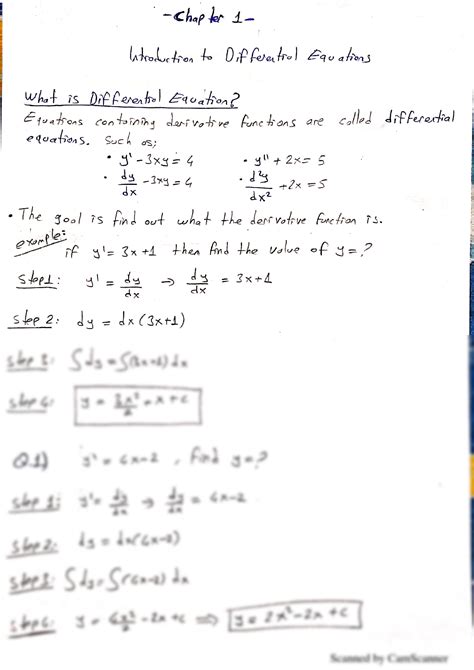 -Chapter 1-
Introduction to Differential Equations
What is Differential Equation?
Equations containing derivative functions are called differential
equations. Such as;
• y' - 3xy = 4 • y'' + 2x = 5
• dy/dx - 3xy = 4 • d²y/dx² + 2x = 5
• The goal is find out what the derivative function is.
example:
if y' = 3x+1 then find the value of y=?
Step1: y' = dy/dx → dy/dx = 3x+1
Step 2: dy = dx(3x+1)
step 3: ∫dy = ∫(3x+1)dx
step 4: y = 3x²/2 + x + c
Q1) y' = 4x-2, find y=?
step 1: y' = dy/dx → dy/dx = 4x-2
step 2: dy = dx(4x-2)
step 3: ∫dy = ∫(4x-2) dx
step 4: y = 4x²/2 - 2x + c ⇒ y = 2x² - 2x + c
Scanned by CamScanner